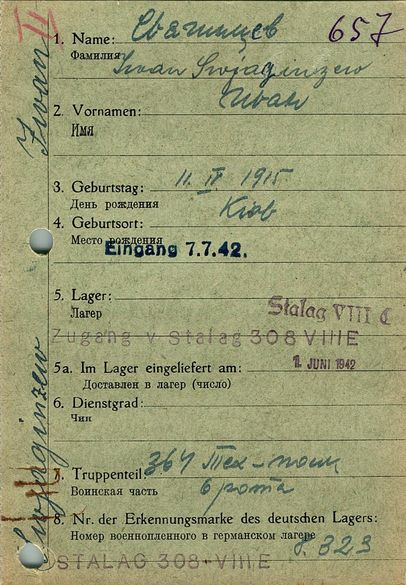 II
1. Name: Свягинцев 657
Фамилия
Iwan Swjaginzew
2. Vornamen: Иван
Имя
3. Geburtstag: 11. IV 1915
День рождения
4. Geburtsort: Kiob
Место рождения
Eingang 7.7.42.
5. Lager:
Лагер
Stalag VIII C
Zugang v Stalag 308 VIII E
5a. Im Lager eingeliefert am: 1. JUNI 1942
Доставлен в лагер (число)
6. Dienstgrad:
Чин
7. Truppenteil: 364
Воинская часть 6 рота
8. Nr. der Erkennungsmarke des deutschen Lagers:
Номер военнопленного в германском лагере 323
STALAG 308-VIII E
Swjaginzew Iwan